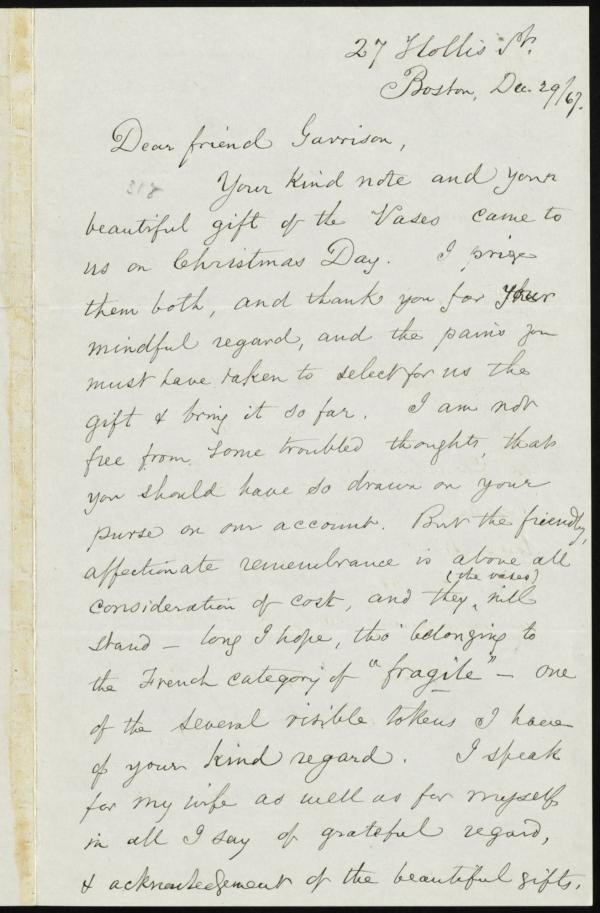 27 Hollis St.
Boston, Dec. 29/67.
Dear friend Garrison,
318
Your kind note and your
beautiful gift of the Vases came to
us on Christmas Day. I prize
them both, and thank you for your
mindful regard, and the pains you
must have taken to select for us the
gift & bring it so far. I am not
free from some troubled thoughts, that
you should have so drawn on your
purse on our account. But the friendly,
affectionate remembrance is above all
consideration of cost, and they (the vases) will
stand – long I hope, tho' belonging to
the French category of "fragile" – one
of the several visible tokens I have
of your kind regard. I speak
for my wife as well as for myself
in all I say of grateful regard,
& acknowledgement of the beautiful gifts.